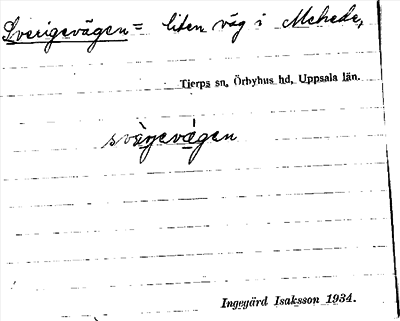 Sverigevägen = liten väg i Mehede,
Tierps sn, Örbyhus hd, Uppsala län.
sværjevägen
Ingegärd Isaksson 1934.